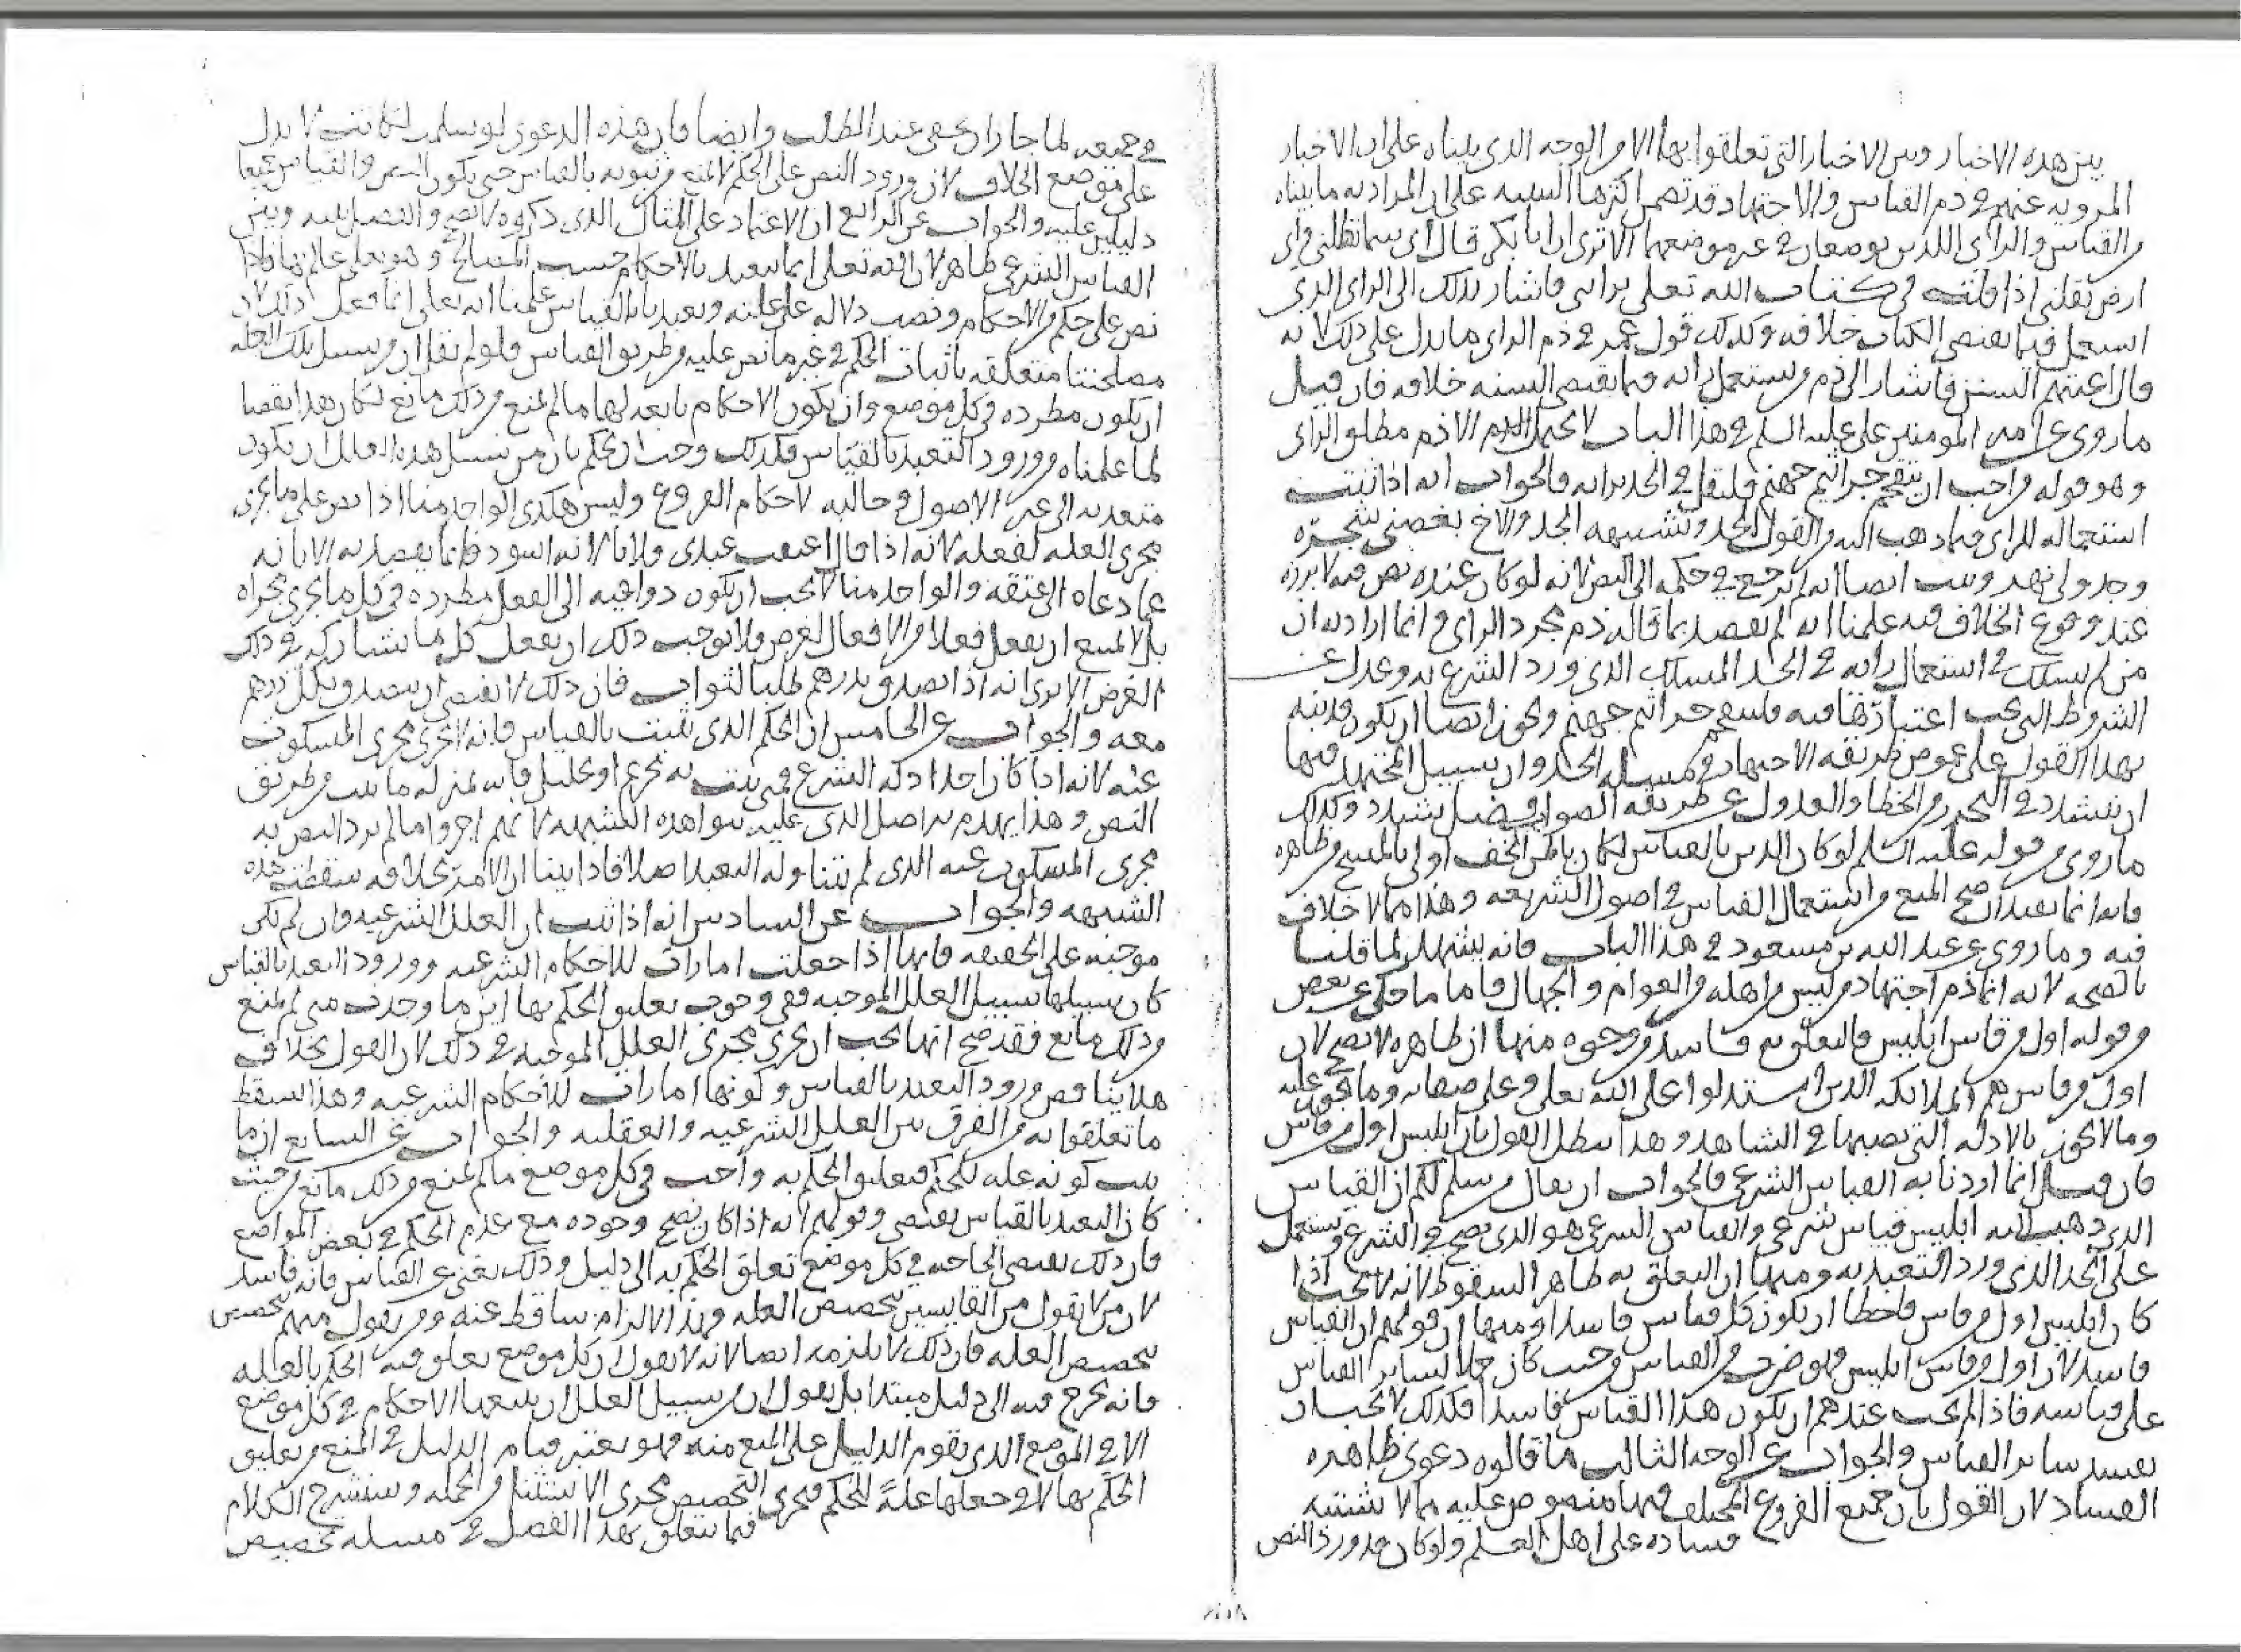 بين هذه الاخبار وبين الاخبار التي تعلقوا بها الا من الوجه الذي بيناه على ان الاخبار
المرويه عنهم في ذم القياس والاجتهاد قد تضمن اكثرها التنبيه على ان المراد به ما بيناه
من القياس والراى اللذين يوضعان في غير موضعهما الا ترى ان ابا بكر قال اى سما تظلني واى
ارض تقلني اذا قلت في كتاب الله تعلى برايى فاشار بذلك الى الراى الذي
استعمل فيما يقتضي الكتاب خلافه وكذلك قول عمر في ذم الراى ما يدل على ذلك لانه
قال اعيتهم السنن فاشار الى ذم من يستعمل رايه فيما يقتضي السنه خلافه فان قيل
ما روى عن امير المومنين على عليه السلم في هذا الباب لا يحتمل الا ذم مطلق الراى
وهو قوله من احب ان يتقحم جراثيم جهنم فليقل في الجد برايه فالجواب انه اذا ثبت
استعماله للراى فيما ذهب اليه من القول في الجد وتشبيهه الجد والاخ بغصني شجرة
وجدولي نهر وثبت ايضا انه لم يرجع في حكمه الى النص لانه لو كان عنده نص فيه لابرزه
عند وقوع الخلاف فيه علمنا انه لم يقصد بما قاله ذم مجرد الراى وانما اراد به ان
من لم يسلك في استعمال رايه في الجد المسلك الذي ورد الشرع به وعدل عن
الشروط التي يجب اعتبارها فيه فليتقحم جراثيم جهنم ويجوز ايضا ان يكون قد نبه
بهذا القول على غموض طريقه الاجتهاد في مسله الجد وان سبيل المجتهد فيها
ان يتشدد في التحرز من الخطا والعدول عن طريقه الصواب فضل تشدد وكذلك
ما روى من قوله عليه السلم لو كان الدين بالقياس لكان باطن الخف اولى بالمسح من ظاهره
فانه انما يفيد ان صح المنع من استعمال القياس في اصول الشريعه وهذا مما لا خلاف
فيه وما روى عن عبد الله بن مسعود في هذا الباب فانه يشهد لما قلنا
بالصحه لانه انما ذم اجتهاد من ليس من اهله من العوام والجهال فاما ما حكى عن بعض
من قوله اول من قاس ابليس فالتعلق به فاسد من وجوه منها ان ظاهره لا يصح لان
اول من قاس هم الملايكه الذين استدلوا على الله تعلى وعلى صفاته وما يجوز عليه
وما لا يجوز بالادله التي نصبها في الشاهد وهذا يبطل القول بان ابليس اول من قاس
فان قيل انما اردنا به القياس الشرعي فالجواب ان يقال من سلم لكم ان القياس
الذي ذهب اليه ابليس قياس شرعي والقياس الشرعي هو الذي يصح في الشرع ويستعمل
على الحد الذي ورد التعبد به ومنها ان التعلق به ظاهر السقوط لانه لا يجب اذا
كان ابليس اول من قاس فاخطا ان يكون كل قياس فاسدا ومنها ان قولهم ان القياس
فاسد لان اول من قاس ابليس فهو ضرب من القياس وحيث كان حملا لساير القياس
على قياسه فاذا لم يجب عندهم ان يكون هذا القياس فاسدا فكذلك لا يجب ان
يفسد ساير القياس والجواب عن الوجه الثالث ما قالوه دعوى ظاهره
الفساد لان القول بان جميع الفروع المختلف فيها منصوص عليه مما لا يشتبه
فساده على اهل العلم ولو كان قد ورد النص
في جميعه لما جاز ان يخفى عند الطلب وايضا فان هذه الدعوى لو سلمت لكانت لا تدل
على موضع الخلاف لان ورود النص على الحكم لا يمنع من ثبوته بالقياس حتى يكون النص والقياس جميعا
دليلين عليه والجواب عن الرابع ان الاعتماد على المثال الذي ذكروه لا يصح والفصل بينه وبين
القياس الشرعي ظاهر لان الله تعلى انما يتعبد بالاحكام بحسب المصالح وهو تعلى عالم بها فاذا
نص على حكم من الاحكام ونصب دلاله على علته وتعبدنا بالقياس علمنا انه تعلى انما فعل ذلك لان
مصلحتنا متعلقه باثبات الحكم في غير ما نص عليه من طريق القياس فلو لم نقل ان من سبيل تلك العله
ان يكون مطرده في كل موضع وان يكون الاحكام تابعه لها ما لم يمنع من ذلك مانع لكان هذا نقضا
لما علمناه من ورود التعبد بالقياس فكذلك وجب ان يحكم بان من سبيل هذه العلل ان يكون
متعديه الى غير الاصول وجالبه لاحكام الفروع وليس هكذى الواحد منا اذا نص على ما يجرى
مجرى العله لفعله لانه اذا قال اعتقت عبدى فلانا لانه اسود فانما يقصد به الابانه
عما دعاه الى عتقه والواحد منا لا يجب ان يكون دواعيه الى الفعل مطرده في كل ما يجرى مجراه
بل لا يمتنع ان يفعل فعلا من الافعال لغرض ولا يوجب ذلك ان يفعل كل ما يشاركه في ذلك
الغرض الا ترى انه اذا تصدق بدرهم طلبا للثواب فان ذلك لا يقتضي ان يتصدق بكل درهم
معه والجواب عن الخامس ان الحكم الذي يثبت بالقياس فانه لا يجرى مجرى المسكوت
عنه لانه اذا كان احد ادله الشرع فمتى يثبت به تحريم او تحليل فانه بمنزله ما يثبت من طريق
النص وهذا يهدم الاصل الذي عليه بنوا هذه الشبهه لانهم اجروا ما لم يرد النص به
مجرى المسكوت عنه الذي لم يتناوله التعبد اصلا فاذا بينا ان الامر بخلافه سقطت هذه
الشبهه والجواب عن السادس انه اذا ثبت ان العلل الشرعيه وان لم تكن
موجبه على الحقيقه فانها اذا جعلت امارات للاحكام الشرعيه وورود التعبد بالقياس
كان سبيلها سبيل العلل الموجبه في وجوب تعليق الحكم بها اين ما وجدت متى لم يمنع
من ذلك مانع فقد صح انها يجب ان يجرى مجرى العلل الموجبه في ذلك لان القول بخلاف
هذا يناقض ورود التعبد بالقياس وكونها امارات للاحكام الشرعيه وهذا يسقط
ما تعلقوا به من الفرق بين العلل الشرعيه والعقليه والجواب عن السابع ان ما
ثبت كونه عله للحكم فتعليق الحكم به واجب في كل موضع ما لم يمنع من ذلك مانع من حيث
كان التعبد بالقياس يقتضي وقولهم انه اذا كان يصح وجوده مع عدم الحكم في بعض المواضع
فان ذلك يقتضي الحاجه في كل موضع تعلق الحكم به الى دليل وذلك يغني عن القياس فانه فاسد
لان من لا يقول من القايسين بتخصيص العله فهذا الالزام ساقط عنه ومن يقول منهم
بتخصيص العله فان ذلك لا يلزمه ايضا لانه لا يقول ان كل موضع تعلق فيه الحكم بالعله
فانه يخرج فيه الى دليل مبتدا بل يقول ان من سبيل العلل ان يتبعها الاحكام في كل موضع
الا في الموضع الذي يقوم الدليل على المنع منه فهو يعتبر قيام الدليل في المنع من تعليق
الحكم بها لا في جعلها علة للحكم فيجرى التخصيص مجرى الاستثنا من الجمله وسنشرح الكلام
فيما يتعلق بهذا الفصل في مسله تخصيص